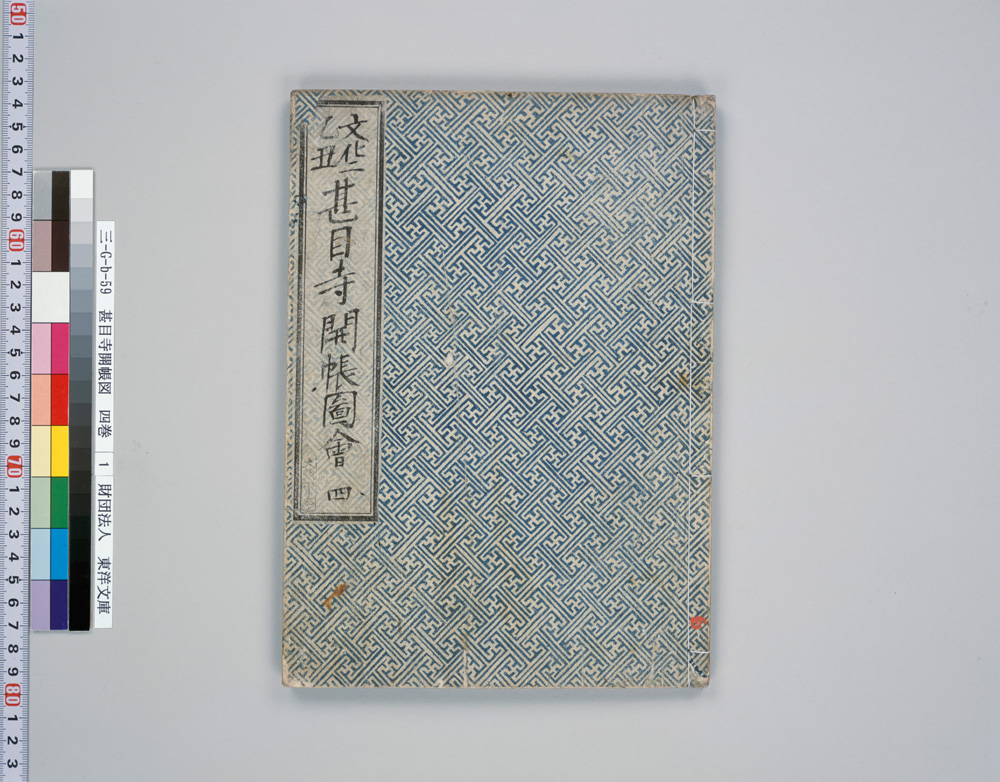 文化二
乙丑
甚目寺開帳圖會 四
三-G-b-59 甚目寺開帳図 四巻 1 財団法人 東洋文庫
50 1 2 3 4 5 6 7 8 9 60 1 2 3 4 5 6 7 8 9 70 1 2 3 4 5 6 7 8 9 80 1 2 3